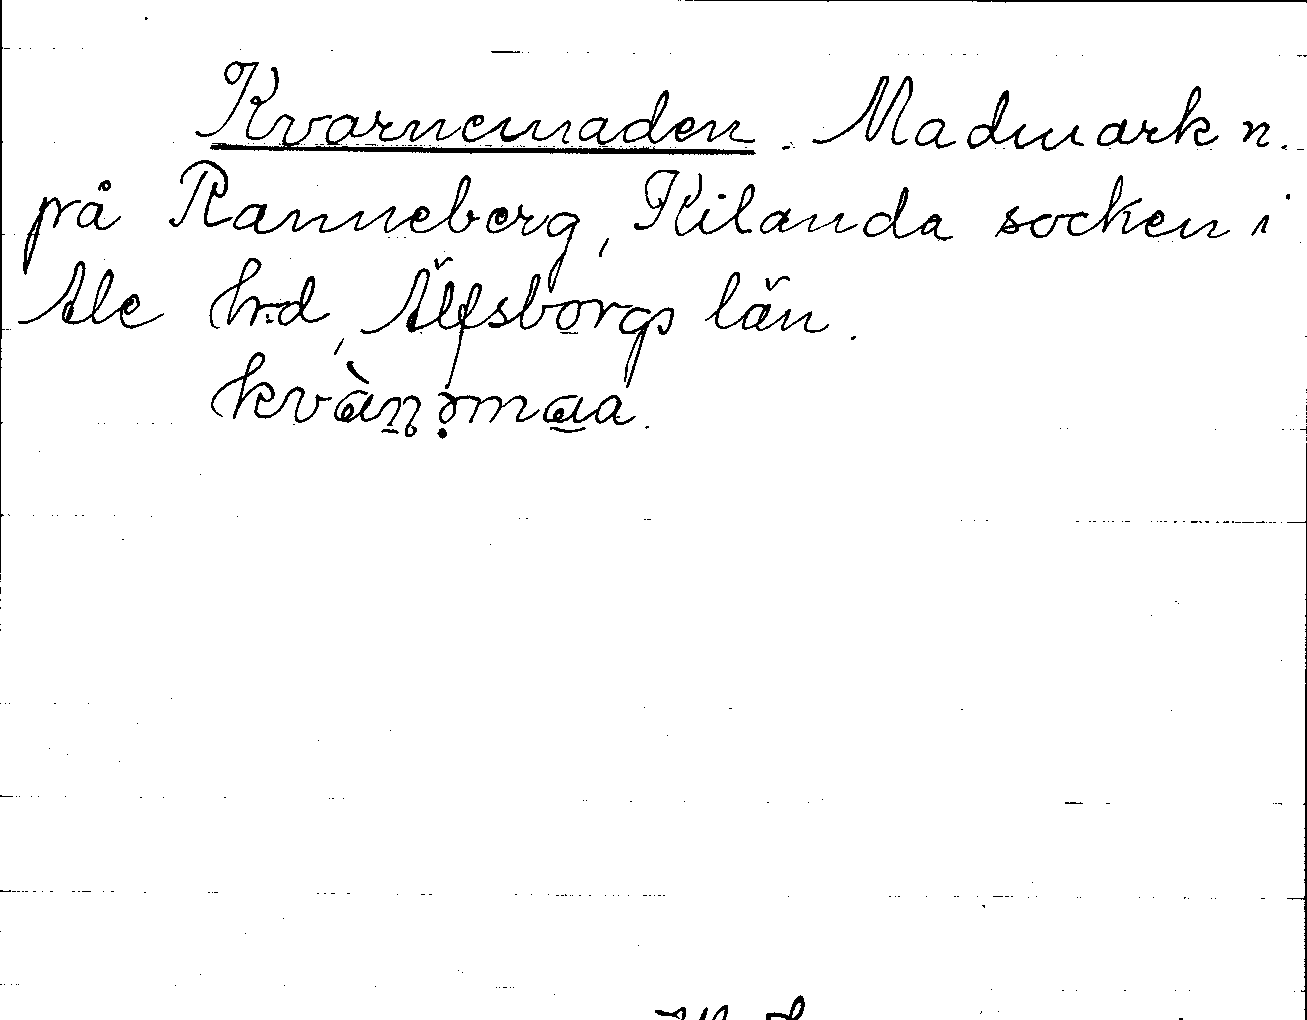 Kvarnemaden. Madmark n.
på Ranneberg, Kilanda socken i
Ale hrd, Älfsborgs län.
kvàn̠əmaa.